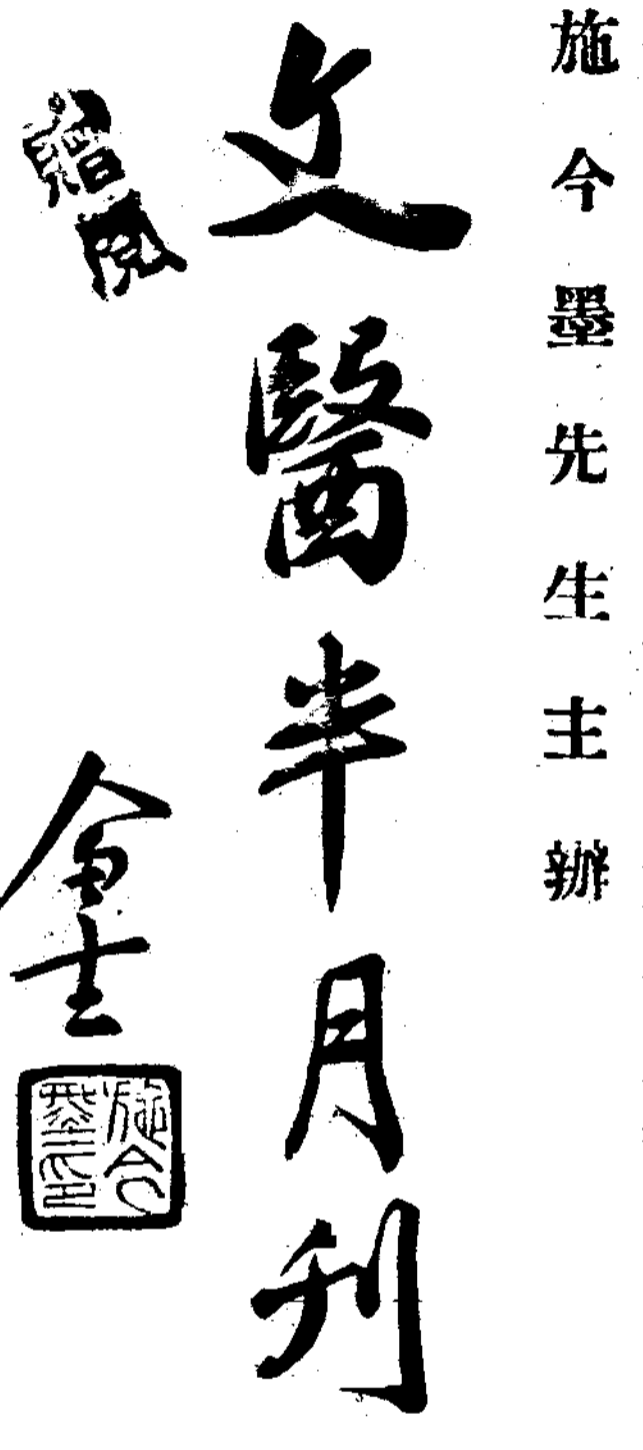 施今墨先生主辦
文醫半月刊
贈閱
施今墨